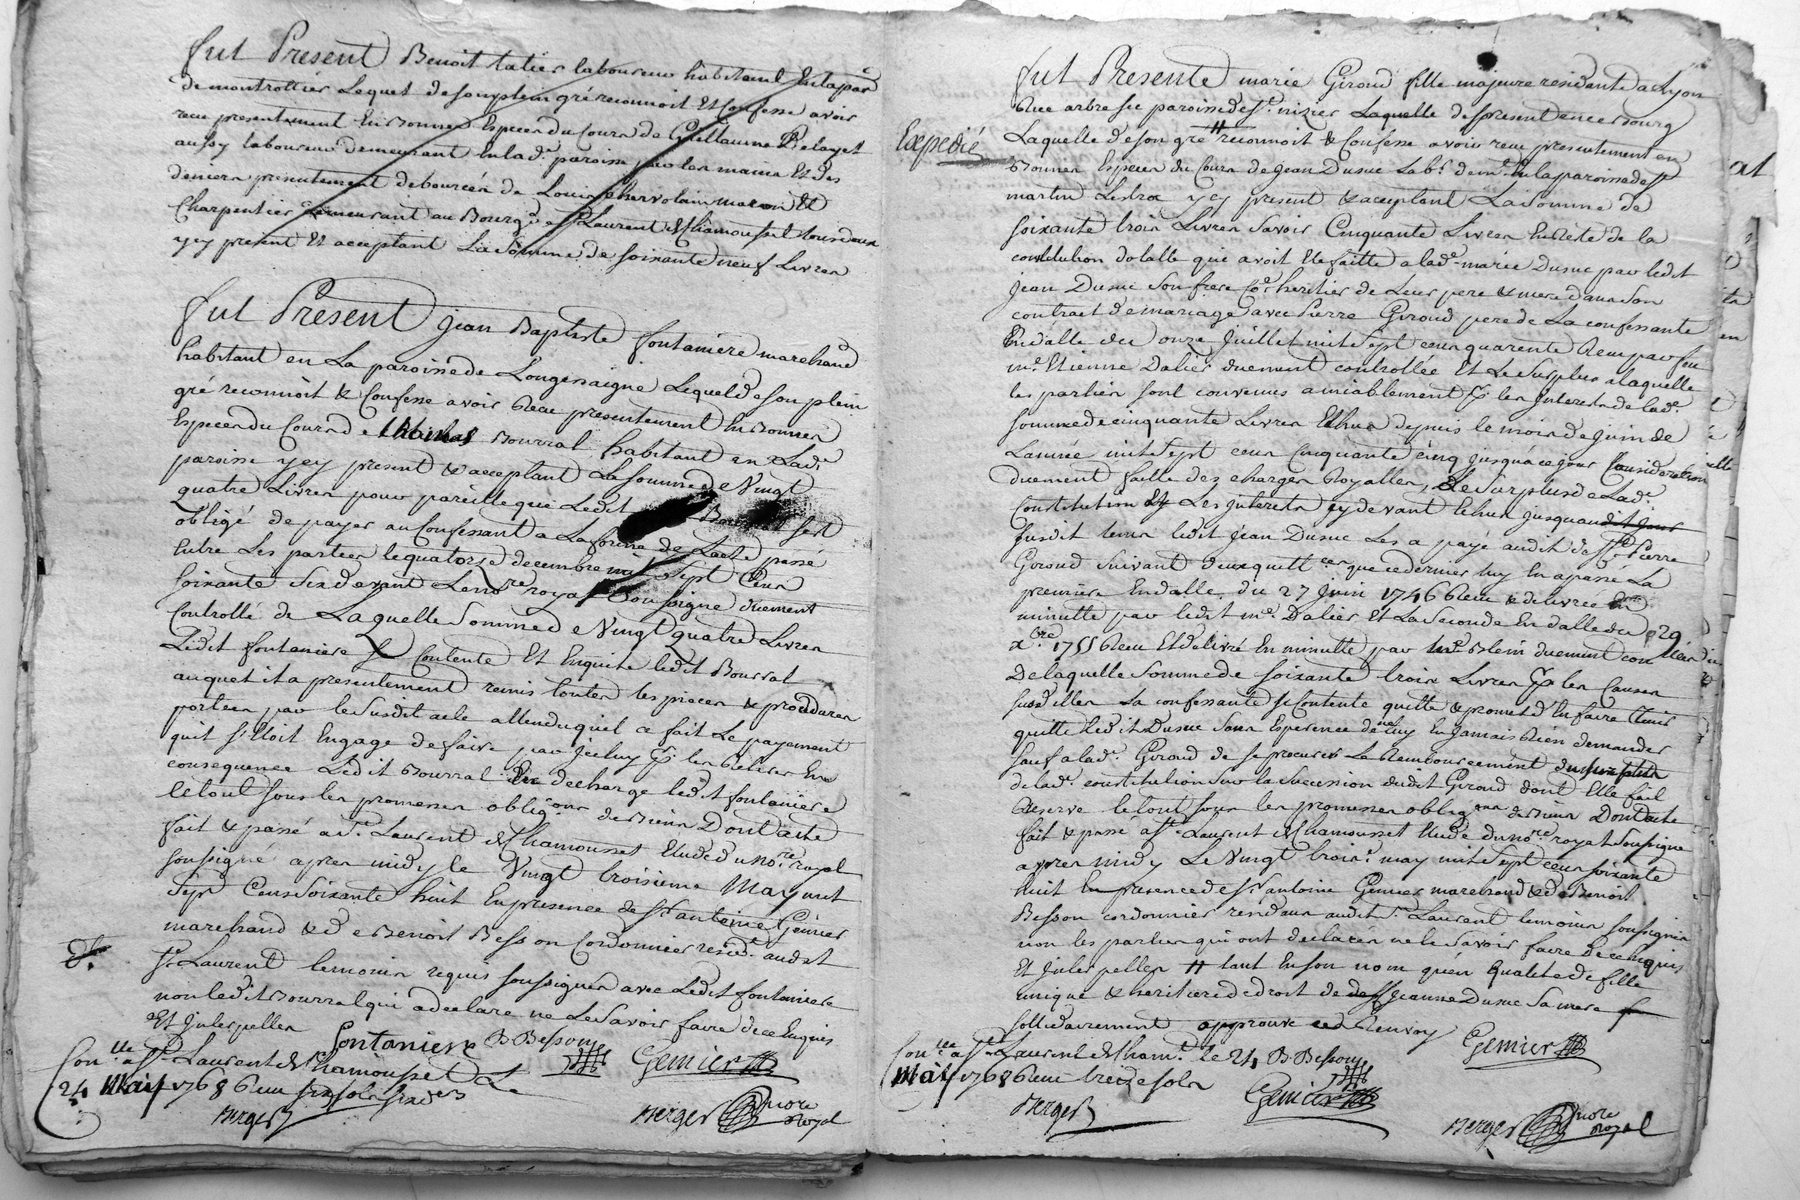 fut Present Benoit tatier laboureur habitant en la par.e
de montrottier Lequel de son plein gré reconnoit Et Confesse avoir
receu presentement En Bonnes Especes du Cours de Guillaume
aussy laboureur demeurant En lad.e paroisse par les mains Et des
deniers presentement deboursés de Louis maçon Et
Charpentier demeurant au Bourg de St Laurent de Chamousset tous deux
ycy present Et acceptant La Somme de soixante neuf Livres
fut Present jean Baptiste fontaniere marchand
habitant en La paroisse de Longessaigne Lequel de son plein
gré reconnoit & Confesse avoir Receu presentement En Bonnes
Especes du Cours de thomas Bourrat habitant en Lad.e
paroisse ycy present & acceptant La Somme de Vingt
quatre Livres pour pareille que Ledit Bourrat sest
obligé de payer au Confessant a La forme de Lacte passé
Entre Les parties le quatorze decembre mil Sept Cens
soixante Six devant Le no.re royal Soussigné duement
Controllé de Laquelle Somme de Vingt quatre Livres
Ledit fontaniere se Contente Et En quitte ledit Bourrat
auquel il a presentement remis toutes les pieces & procedures
portées par le Susdit acte attendu quil a fait Le payement
quil s'Etoit Engagé de faire par Jceluy & les En
consequence Ledit Bourrat En decharge ledit fontaniere
Le tout Sous les promesses oblig.ons de Biens Dont acte
fait & passé a St. Laurent de Chamousset Etude du No.re royal
soussigné apres midy le Vingt troisieme May mil
Sept Cens Soixante huit En presence de Sr antoine Gemier
marchand & de Benoit Besson Cordonnier resid.t audit
St. Laurent temoins requis soussignés avec Ledit fontaniere
non ledit Bourrat qui a declaré ne Le Savoir faire de ce Enquis
Et Jnterpellés
fontaniere B Besson Gemier
Con.lle a St. Laurent de Chamousset Le
24 Mai 1768 Receu six sols six den.rs
Berger
Berger No.re Royal
Expedié
fut Presente marie Giroud fille majeure residente a Lyon
Rue arbre sec paroisse de St. nizier Laquelle de present en ce bourg
Laquelle de son gré # reconnoit & Confesse avoir receu presentement en
Bonnes Especes du Cours de Jean Dusuc Lab.r dem.t En la paroisse de St
martin Lestra ycy present & acceptant La Somme de
soixante trois Livres Savoir Cinquante Livres En Reste de la
constitution dotalle qui avoit Ete faitte a lad.e marie Dusuc par ledit
jean Dusuc Son frere Co.heritier de Leurs pere & mere dans Son
contract de mariage avec Pierre Giroud pere de La confessante
En datte du onze Juillet mil Sept cens quarente Receu par feu
m.e Etienne Dalier duement controllée Et Le Surplus a laquelle
les parties sont convenues amiablement p.r les Jnterets de lad.e
somme de cinquante Livres Echus depuis le mois de juin de
Lannée mil Sept cens Cinquante cinq jusqu'a ce jour Consideration
duement faitte des charges Royalles, Le Surplus de Lad.e
Constitution Et Les Jnterets cy devant Echus jusquau dit jour
susdit tems ledit jean Dusuc Les a payé audit deff.t Pierre
Giroud Suivant deux quitt.ces que ce dernier luy En a passé La
premiere En datte du 27 Juin 1746 Receu & delivrée En
minutte par ledit m.e Dalier Et La Seconde En datte du 29
x.bre 1755 Receu Et delivré En minutte par m.e Blein duement con.llées
De laquelle Somme de soixante trois Livres & p.r les Causes
susdittes La confessante se Contente quitte & promet d'En faire tenir
quitte ledit Dusuc Sans Esperence de luy En jamais Rien demander
Sauf a lad.e Giroud de se procurer Le Remboursement du surplus
de lad.e constitution Sur la Succession dudit Giroud dont Elle fait
Reserve le tout Sous les promesses oblig.ons de Biens Dont acte
fait & passé a St. Laurent de Chamousset Etude du no.re royal Soussigné
apres midy Le Vingt trois.e may mil Sept cens soixante
huit En presence de Sr antoine Gemier marchand & de Benoit
Besson cordonnier residans audit St. Laurent temoins soussignés
non les parties qui ont declarés ne le Savoir faire de ce Enquis
Et Jnterpellés # tant En son nom qu'en qualité de fille
unique & heritiere de droit de deff.te Jeanne Dusuc Sa mere
sollidairement approuvé led Renvoy Gemier
Con.llé a St. Laurent de Cham.t le 24 B Besson
Mai 1768 Receu treize sols Gemier
Berger
Berger No.re Royal